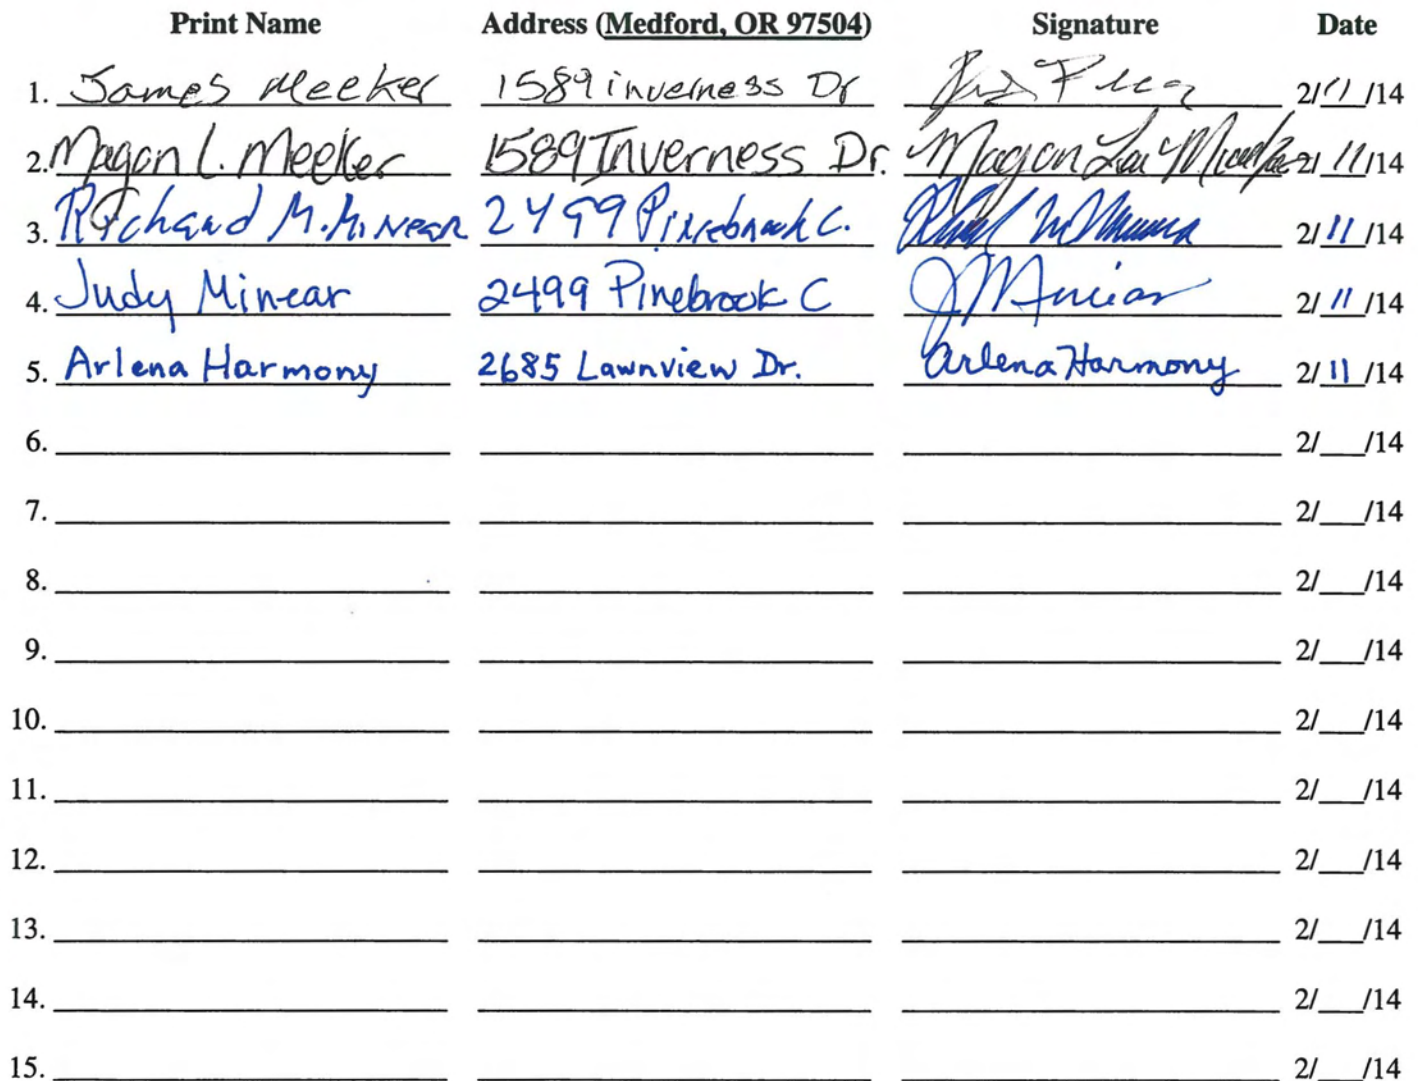 Print Name Address (Medford, OR 97504) Signature Date
1. James Meeker 1589 inverness Dr 2/11/14
2. Magan L. Meeker 1589 Inverness Dr. Magan Lea Meeker 2/11/14
3. Richard M. Minear 2499 Pinebrook C. 2/11/14
4. Judy Minear 2499 Pinebrook C J Minear 2/11/14
5. Arlena Harmony 2685 Lawnview Dr. Arlena Harmony 2/11/14
6. 2/___/14
7. 2/___/14
8. 2/___/14
9. 2/___/14
10. 2/___/14
11. 2/___/14
12. 2/___/14
13. 2/___/14
14. 2/___/14
15. 2/___/14